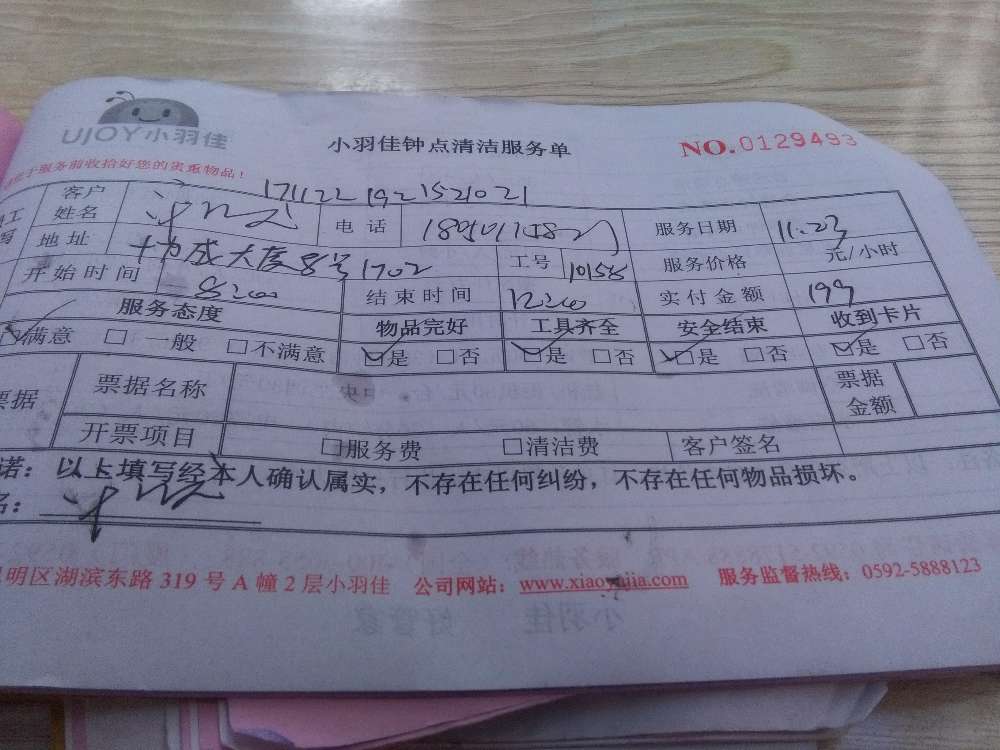 UJOY小羽佳
小羽佳钟点清洁服务单 NO.0129493
于服务前收拾好您的贵重物品!
1711221921521021
客户姓名 电话 服务日期 11.23
地址 大厦8号1702 工号 101586 服务价格 元/小时
开始时间 8:00 结束时间 12:00 实付金额 199
服务态度 物品完好 工具齐全 安全结束 收到卡片
☑满意 □一般 □不满意 ☑是 □否 ☑是 □否 ☑是 □否 ☑是 □否
票据 票据名称 票据金额
开票项目 □服务费 □清洁费 客户签名
诺：以上填写经本人确认属实，不存在任何纠纷，不存在任何物品损坏。
名：
明区湖滨东路 319 号 A 幢 2 层小羽佳 公司网站： 服务监督热线：0592-5888123